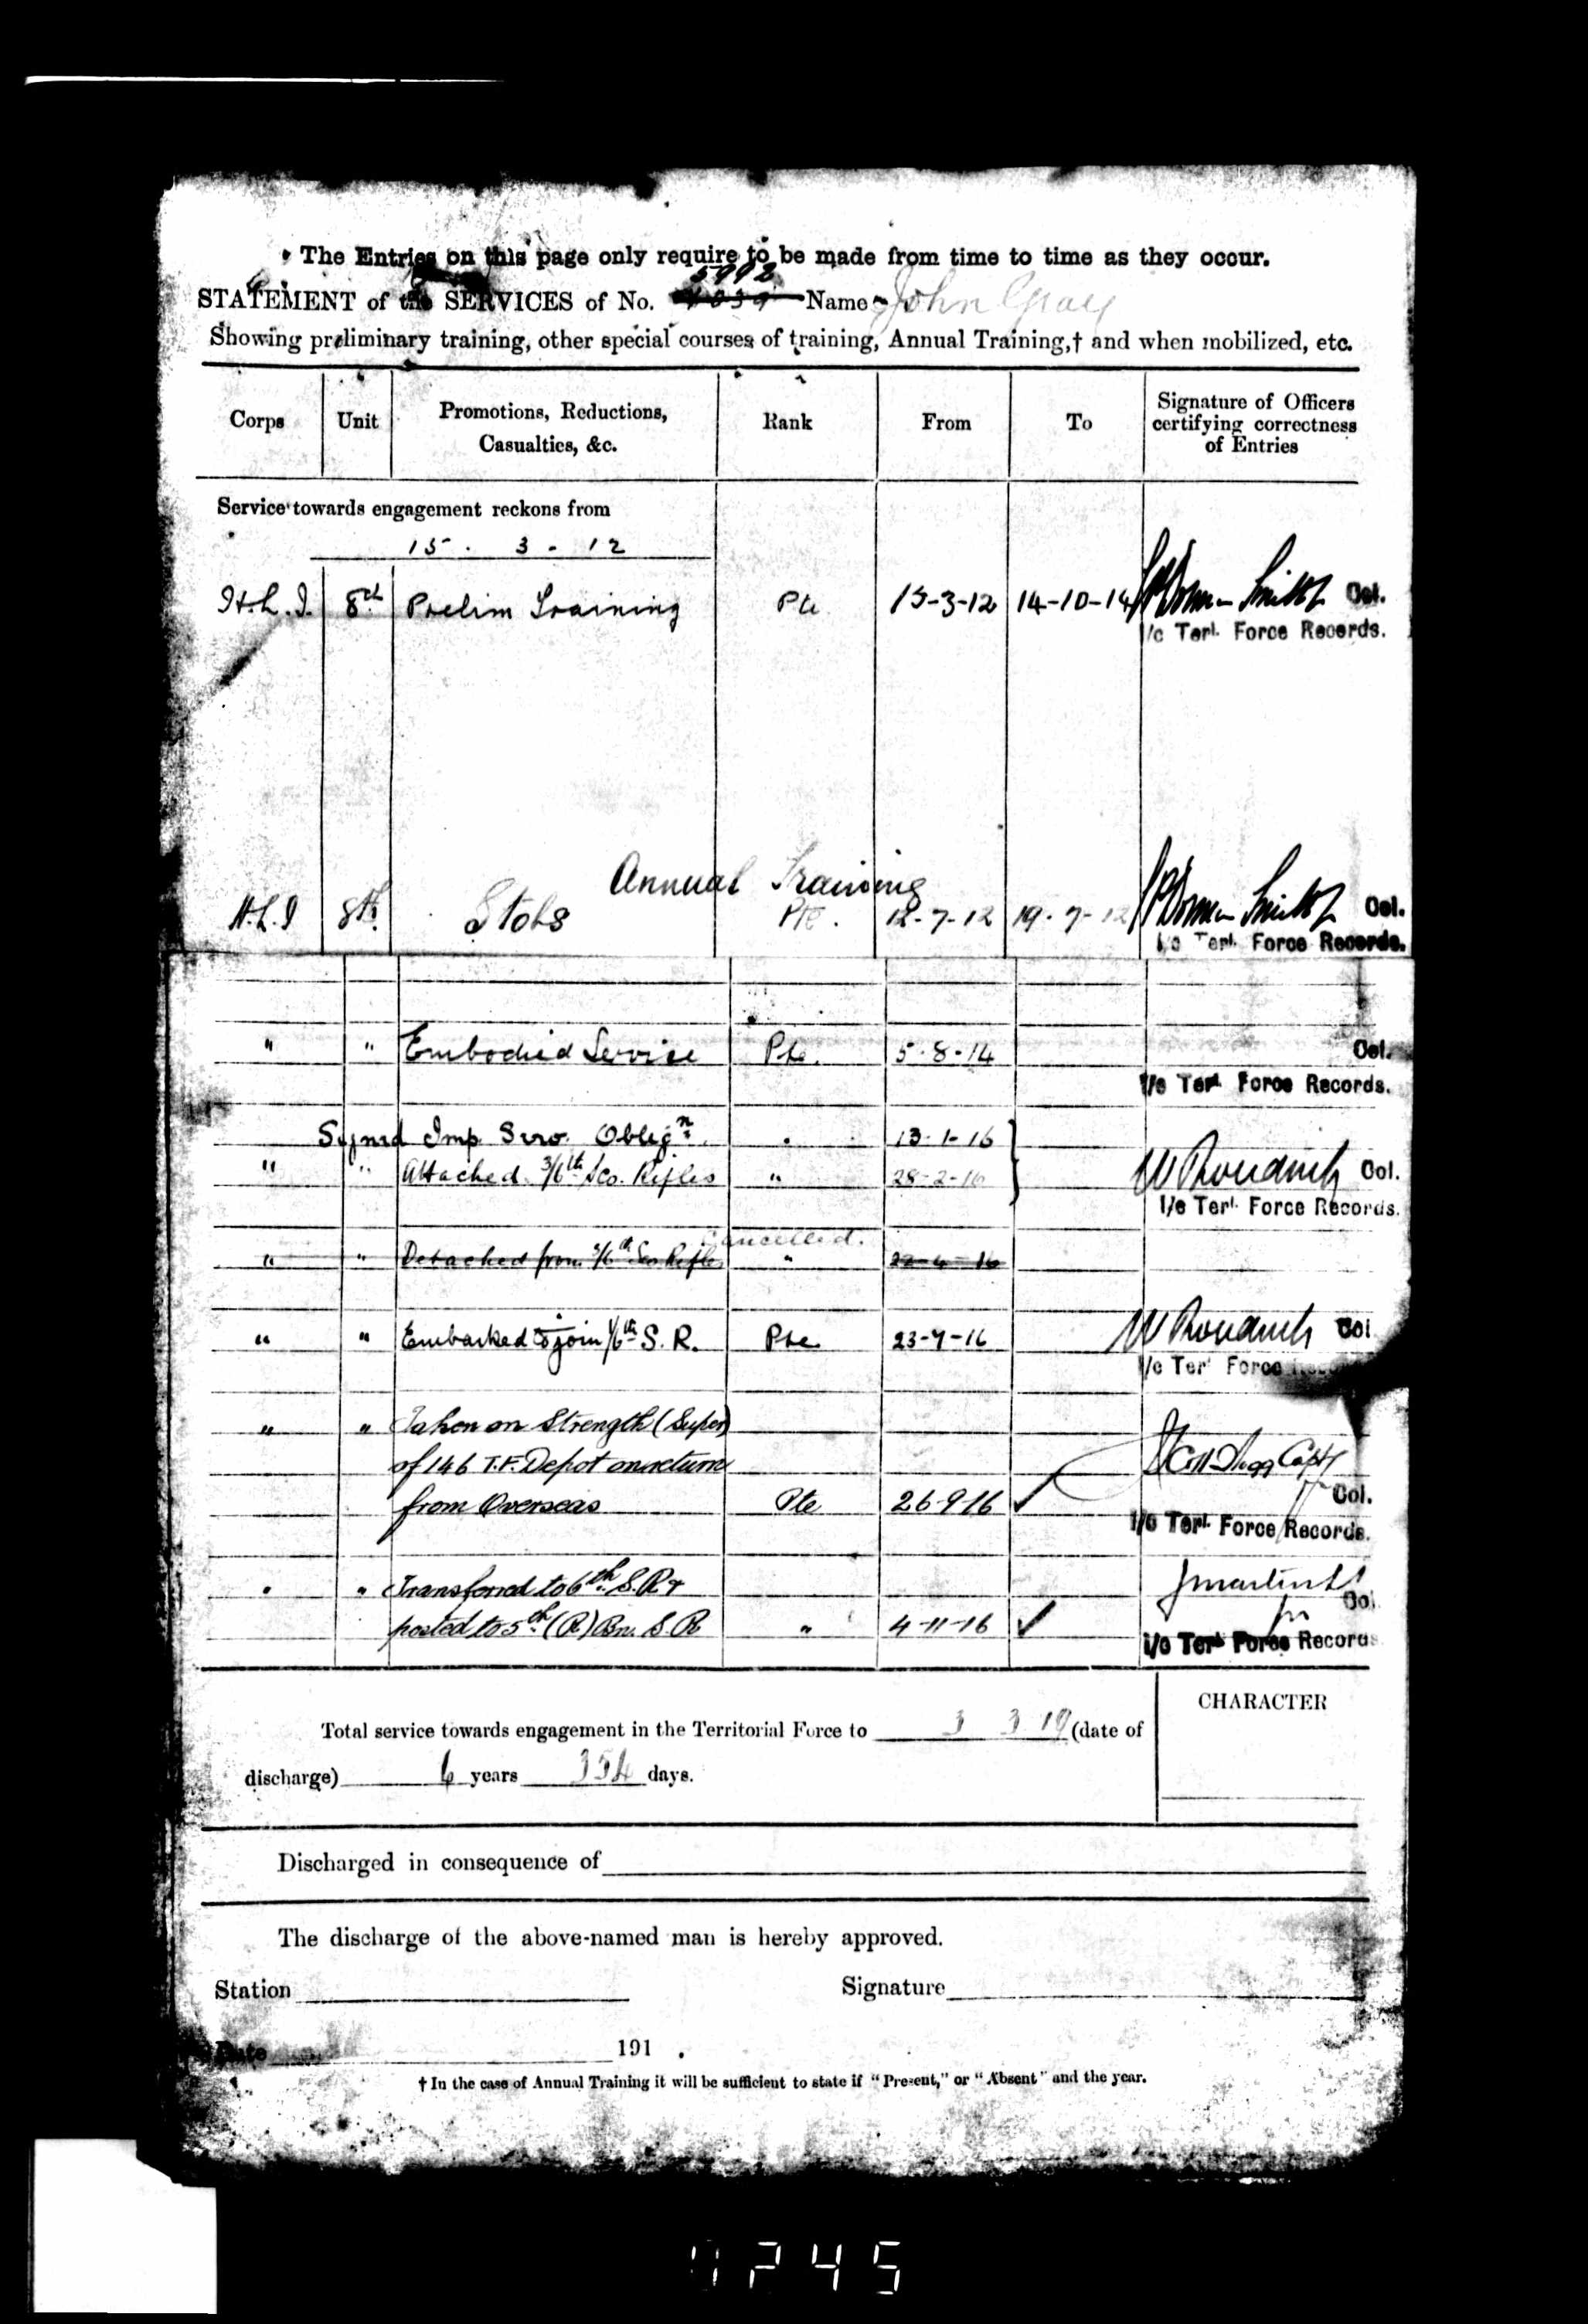 The Entries on this page only require to be made from time to time as they occur.
5992
STATEMENT of the SERVICES of No. Name John Gray
Showing preliminary training, other special courses of training, Annual Training,† and when mobilized, etc.
Corps Unit Promotions, Reductions, Casualties, &c. Rank From To Signature of Officers certifying correctness of Entries
Service towards engagement reckons from
15 . 3 - 12
H.L.I. 8th Prelim Training Pte 15-3-12 14-10-14 Col.
i/c Terl. Force Records.
Annual Training
H.L.I 8th Stobs Pte. 12-7-12 19-7-12 Col.
i/c Terl. Force Records.
" " Embodied Service Pte. 5-8-14 Col.
i/c Terl. Force Records.
Signed Imp. Serv. Oblign. " 13-1-16
" " Attached 3/6th Sco. Rifles " 28-2-16 Col.
i/c Terl. Force Records.
Cancelled.
" " Detached from 3/6th Sco Rifles " 22-4-16
" " Embarked to join 1/6th S.R. Pte 23-7-16 Col
i/c Terl Force
" " Taken on Strength (Super)
of 146 T.F. Depot on return
from Overseas Pte 26-9-16 ✓ Capt
Col.
i/c Terl. Force Records.
" " Transferred to 6th S.R. &
posted to 5th (R) Bn. S.R " 4-11-16 ✓ Col
i/c Terl Force Records
CHARACTER
Total service towards engagement in the Territorial Force to 3 3 19 (date of
discharge) 6 years 354 days.
Discharged in consequence of
The discharge of the above-named man is hereby approved.
Station Signature
Date 191 .
† In the case of Annual Training it will be sufficient to state if "Present," or "Absent" and the year.
0245